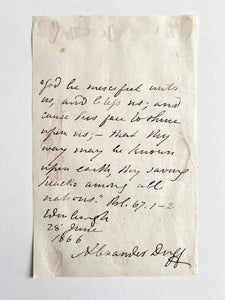 God be merciful unto
us, and bless us; and
cause his face to shine
upon us; – that thy
way may be known
upon earth, thy saving
health among all
nations." Ps. 67. 1-2
Edinburgh
28 June
1866
Alexander Duff